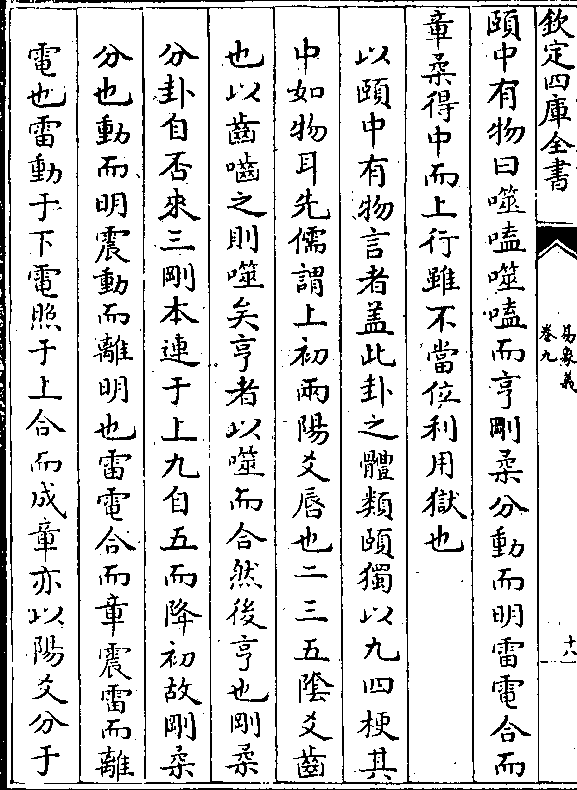 欽定四庫全書
易象義
卷九
十八
頤中有物曰噬嗑噬嗑而亨剛柔分動而明雷電合而
章柔得中而上行雖不當位利用獄也
以頤中有物言者盖此卦之體類頤獨以九四梗其
中如物耳先儒謂上初兩陽爻唇也二三五隂爻齒
也以齒嚙之則噬矣亨者以噬而合然後亨也剛柔
分卦自否來三剛本連于上九自五而降初故剛柔
分也動而明震動而離明也雷電合而章震雷而離
電也雷動于下電照于上合而成章亦以陽爻分于